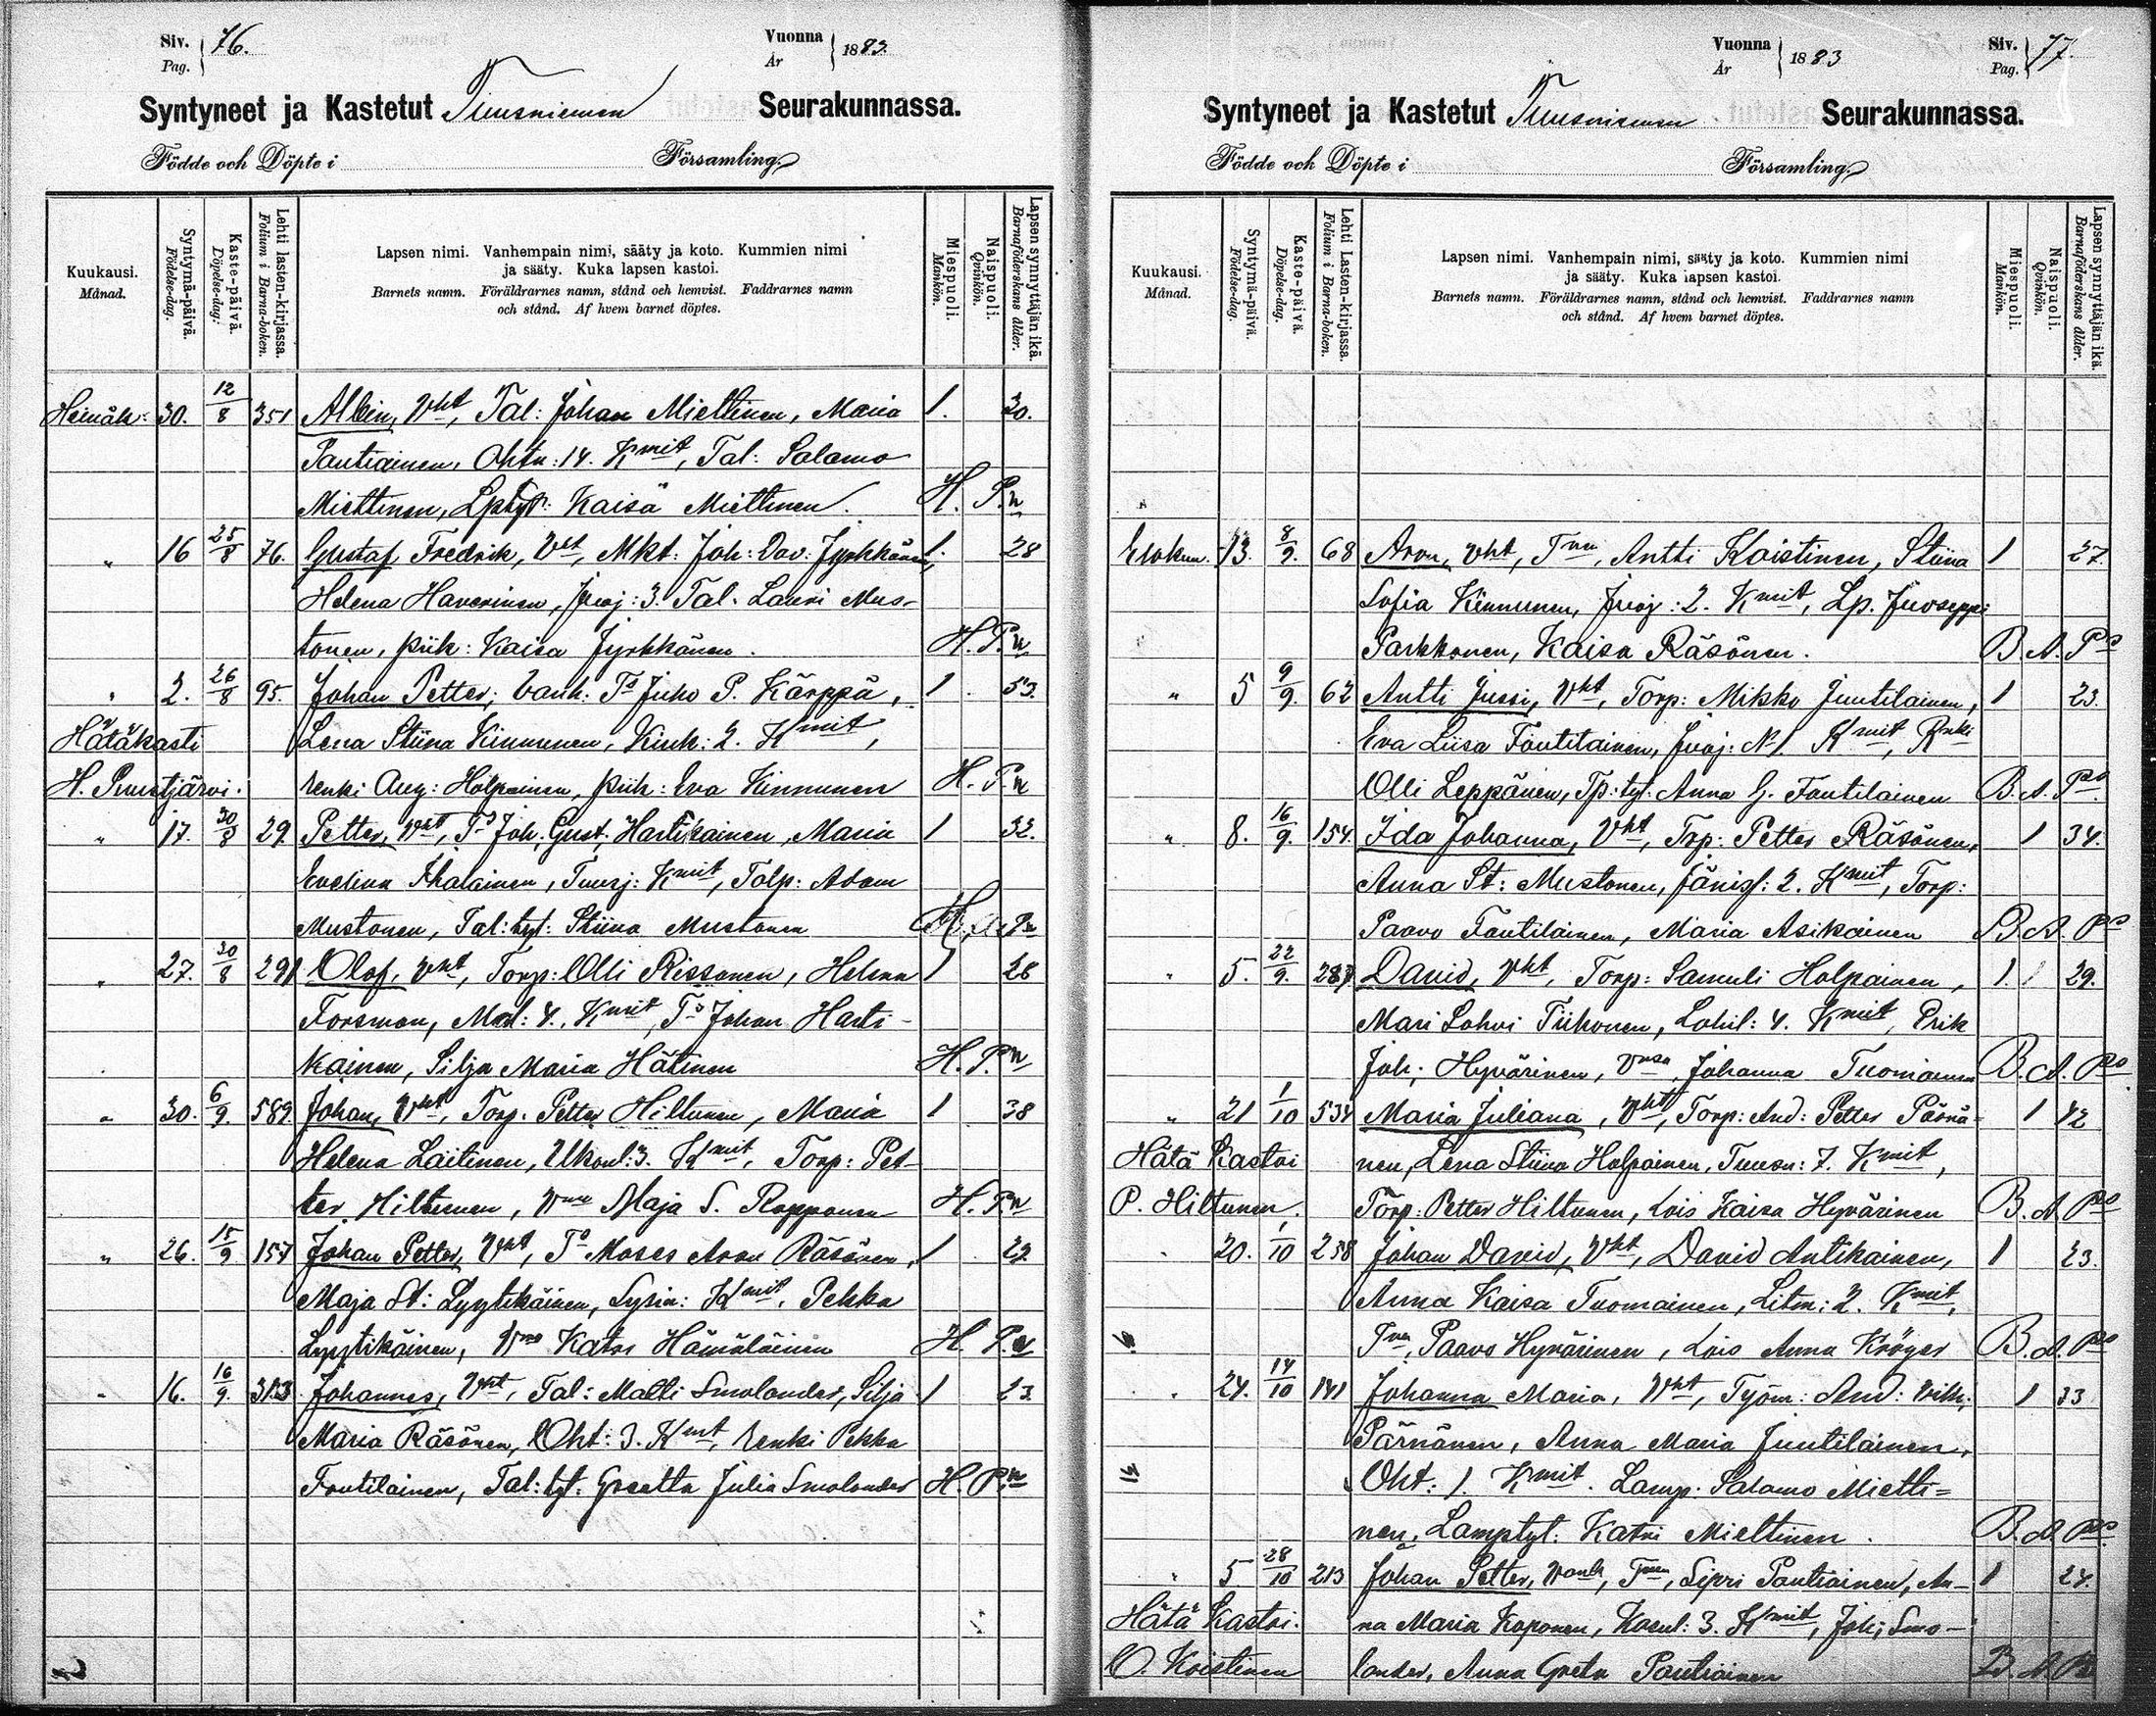 Siv. Pag. 76.
Vuonna År 1883.
Syntyneet ja Kastetut Tuusniemen Seurakunnassa.
Födde och Döpte i Församling.
Kuukausi. Månad.
Syntymä-päivä. Födelse-dag.
Kaste-päivä. Döpelse-dag.
Lehti lasten-kirjassa. Folium i Barna-boken.
Lapsen nimi. Vanhempain nimi, sääty ja koto. Kummien nimi
ja sääty. Kuka lapsen kastoi.
Barnets namn. Föräldrarnes namn, stånd och hemvist. Faddrarnes namn
och stånd. Af hvem barnet döptes.
Miespuoli. Mankön.
Naispuoli. Qvinkön.
Lapsen synnyttäjän ikä. Barnaföderskans ålder.
Heinäk: 30. 12/8 351 Albin, Vht, Tal: Johan Miettinen, Maria 1. 30.
Pautiainen, Ohtn: 14. Kmit, Tal: Salamo
Miettinen, Lptyt: Kaisa Miettinen. H. P.n
" 16 25/8 76. Gustaf Fredrik, Vht, Mkt: Joh: Dav: Jyrkkänen, 1. 28
Helena Haverinen, Juoj: 3. Tal. Lauri Mus-
tonen, piik: Kaisa Jyrkkänen. H. P.n
" 2. 26/8 95. Johan Petter, vanh: Ts Juho P. Kärppä, 1. 53.
Hätäkasti Lena Stiina Kinnunen, Kiuk: 2. Kmit,
H. Puustjärvi. renki Aug: Holpainen, piik: Eva Kinnunen H. P.n
" 17. 30/8 29. Petter, Vht, Ts Joh: Gust: Hartikainen, Maria 1 32.
Evelina Ihalainen, Tuusj: Kmit, Talp: Adam
Mustonen, Tal: tyt: Stiina Mustonen
" 27. 30/8 291 Olof, Vht, Torp: Olli Rissanen, Helena 1 26
Forsman, Mel: 4. Kmit, Ts Johan Harti-
kainen, Silja Maria Hätinen H. P.n
" 30. 6/9. 589. Johan, Vht, Torp: Petter Hiltunen, Maria 1 38
Helena Laitinen, Ukonl: 3. Kmit, Torp: Pet-
ter Hiltunen, Vmo Maja S. Ropponen H. P.n
" 26. 15/9 157 Johan Petter, Vht, Ts Moses Aron Räsänen, 1 22.
Maja St: Lyytikäinen, Lysin: Kmit, Pekka
Lyytikäinen, Vmo Katri Hämäläinen H. P.n
" 16. 16/9. 313 Johannes, Vht, Tal: Matti Smolander, Silja 1 23.
Maria Räsänen, Oht: 3. Kmit, renki Pekka
Fautilainen, Tal: tyt: Greetta Julia Smolander H. P.n
Vuonna År 1883
Siv. Pag. 77.
Syntyneet ja Kastetut Tuusniemen Seurakunnassa.
Födde och Döpte i Församling.
Kuukausi. Månad.
Syntymä-päivä. Födelse-dag.
Kaste-päivä. Döpelse-dag.
Lehti Lasten-kirjassa. Folium i Barna-boken.
Lapsen nimi. Vanhempain nimi, sääty ja koto. Kummien nimi
ja sääty. Kuka lapsen kastoi.
Barnets namn. Föräldrarnes namn, stånd och hemvist. Faddrarnes namn
och stånd. Af hvem barnet döptes.
Miespuoli. Mankön.
Naispuoli. Qvinkön.
Lapsen synnyttäjän ikä. Barnaföderskans ålder.
Elokuu. 13. 8/9. 68 Aron, Vht, Tnn, Antti Koistinen, Stiina 1 27.
Sofia Kinnunen, Juoj: 2. Kmit, Lp. Juoseppi
Parkkonen, Kaisa Räsänen. B. A. Pso
" 5 9/9. 62 Antti Jussi, Vht, Torp: Mikko Juutilainen, 1 23.
Eva Liisa Fautilainen, Juoj: N1. Kmit, Rnki
Olli Leppänen, Tp: tyt: Anna G. Fautilainen B. A. Pso
" 8. 16/9. 154. Ida Johanna, Vht, Torp: Petter Räsänen, 1 34.
Anna St: Mustonen, Jänisj: 2. Kmit, Torp:
Paavo Fautilainen, Maria Asikainen B. A. Pso
" 5. 22/9. 287 David, Vht, Torp: Samuli Holpainen, 1. 29.
Mari Sohvi Tiihonen, Lohil: 4. Kmit, Erik
Joh: Hyvärinen, Vnsa Johanna Tuomainen B. A. Pso
" 21 1/10 534 Maria Juliana, Vht, Torp: And: Petter Pärnä= 1 42
Hätä Kastoi nen, Lena Stiina Holpainen, Tuusn: 7. Kmit,
P. Hiltunen. Torp: Petter Hiltunen, Lois Kaisa Hyvärinen B. A. Pso
" 20. 1/10 258 Johan David, Vht, David Antikainen, 1 23.
Anna Kaisa Tuomainen, Litm: 2. Kmit,
Tnn, Paavo Hyvärinen, Lois Anna Kröger B. A. Pso
" 24. 14/10 141 Johanna Maria, Vht, Työm: And: Vilh: 1 33
Pärnänen, Anna Maria Juutilainen,
Oht: 1. Kmit. Lamp. Salamo Mietti=
nen, Lamptyt: Katri Miettinen. B. A. Pso
" 5 28/10 213 Johan Petter, vanh, Tnn, Sipri Pautiainen, An- 1 24.
Hätä Kastoi. na Maria Koponen, Kosul: 3. Kmit, Joh: Smo-
O. Koistinen lander, Anna Greta Pautiainen B. A. Pso